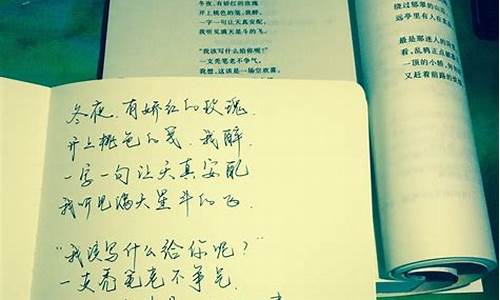 冬夜,有娇红的玫瑰
开上桃色的笺,我醉,
一字一句让天真安配,
我听见满天星斗的飞。
"我该写什么给你呢?"
一支秃笔老不争气。
我想,这该是一场空欢喜,
绕过郁翠的山
远亭里有人在
最是那迷人的
看,乱鸦正点破
一顶的小轿,
又赶着前路的
冬夜,有娇红的玫瑰,
开上桃色的笺,我醉,
一字一句让天真安配
我听见满天星斗的飞
"我该写什么给你呢?"
一支秃笔老不争气.